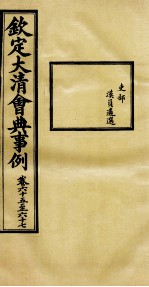 吏部
漢員遴選
欽定大清會典事例
卷六十五至六十七